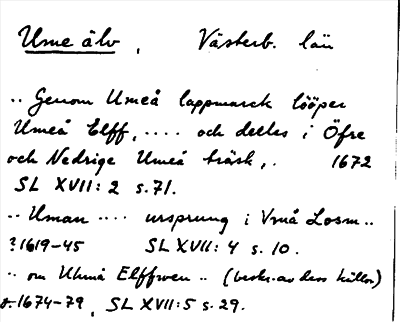 Ume älv, Västerb. län
.. Genom Umeå lappmarck lööper
Umeå Elff, .... och deeles i Öfre
och Nedrige Umeå träsk,. 1672
SL XVII: 2 s. 71.
.. Uman .... ursprung i Vmå Losm..
?1619-45 SL XVII: 4 s. 10.
.. om Uhmå Elffwen .. (beskr. av dess källor)
1674-79, SL XVII: 5 s. 29.